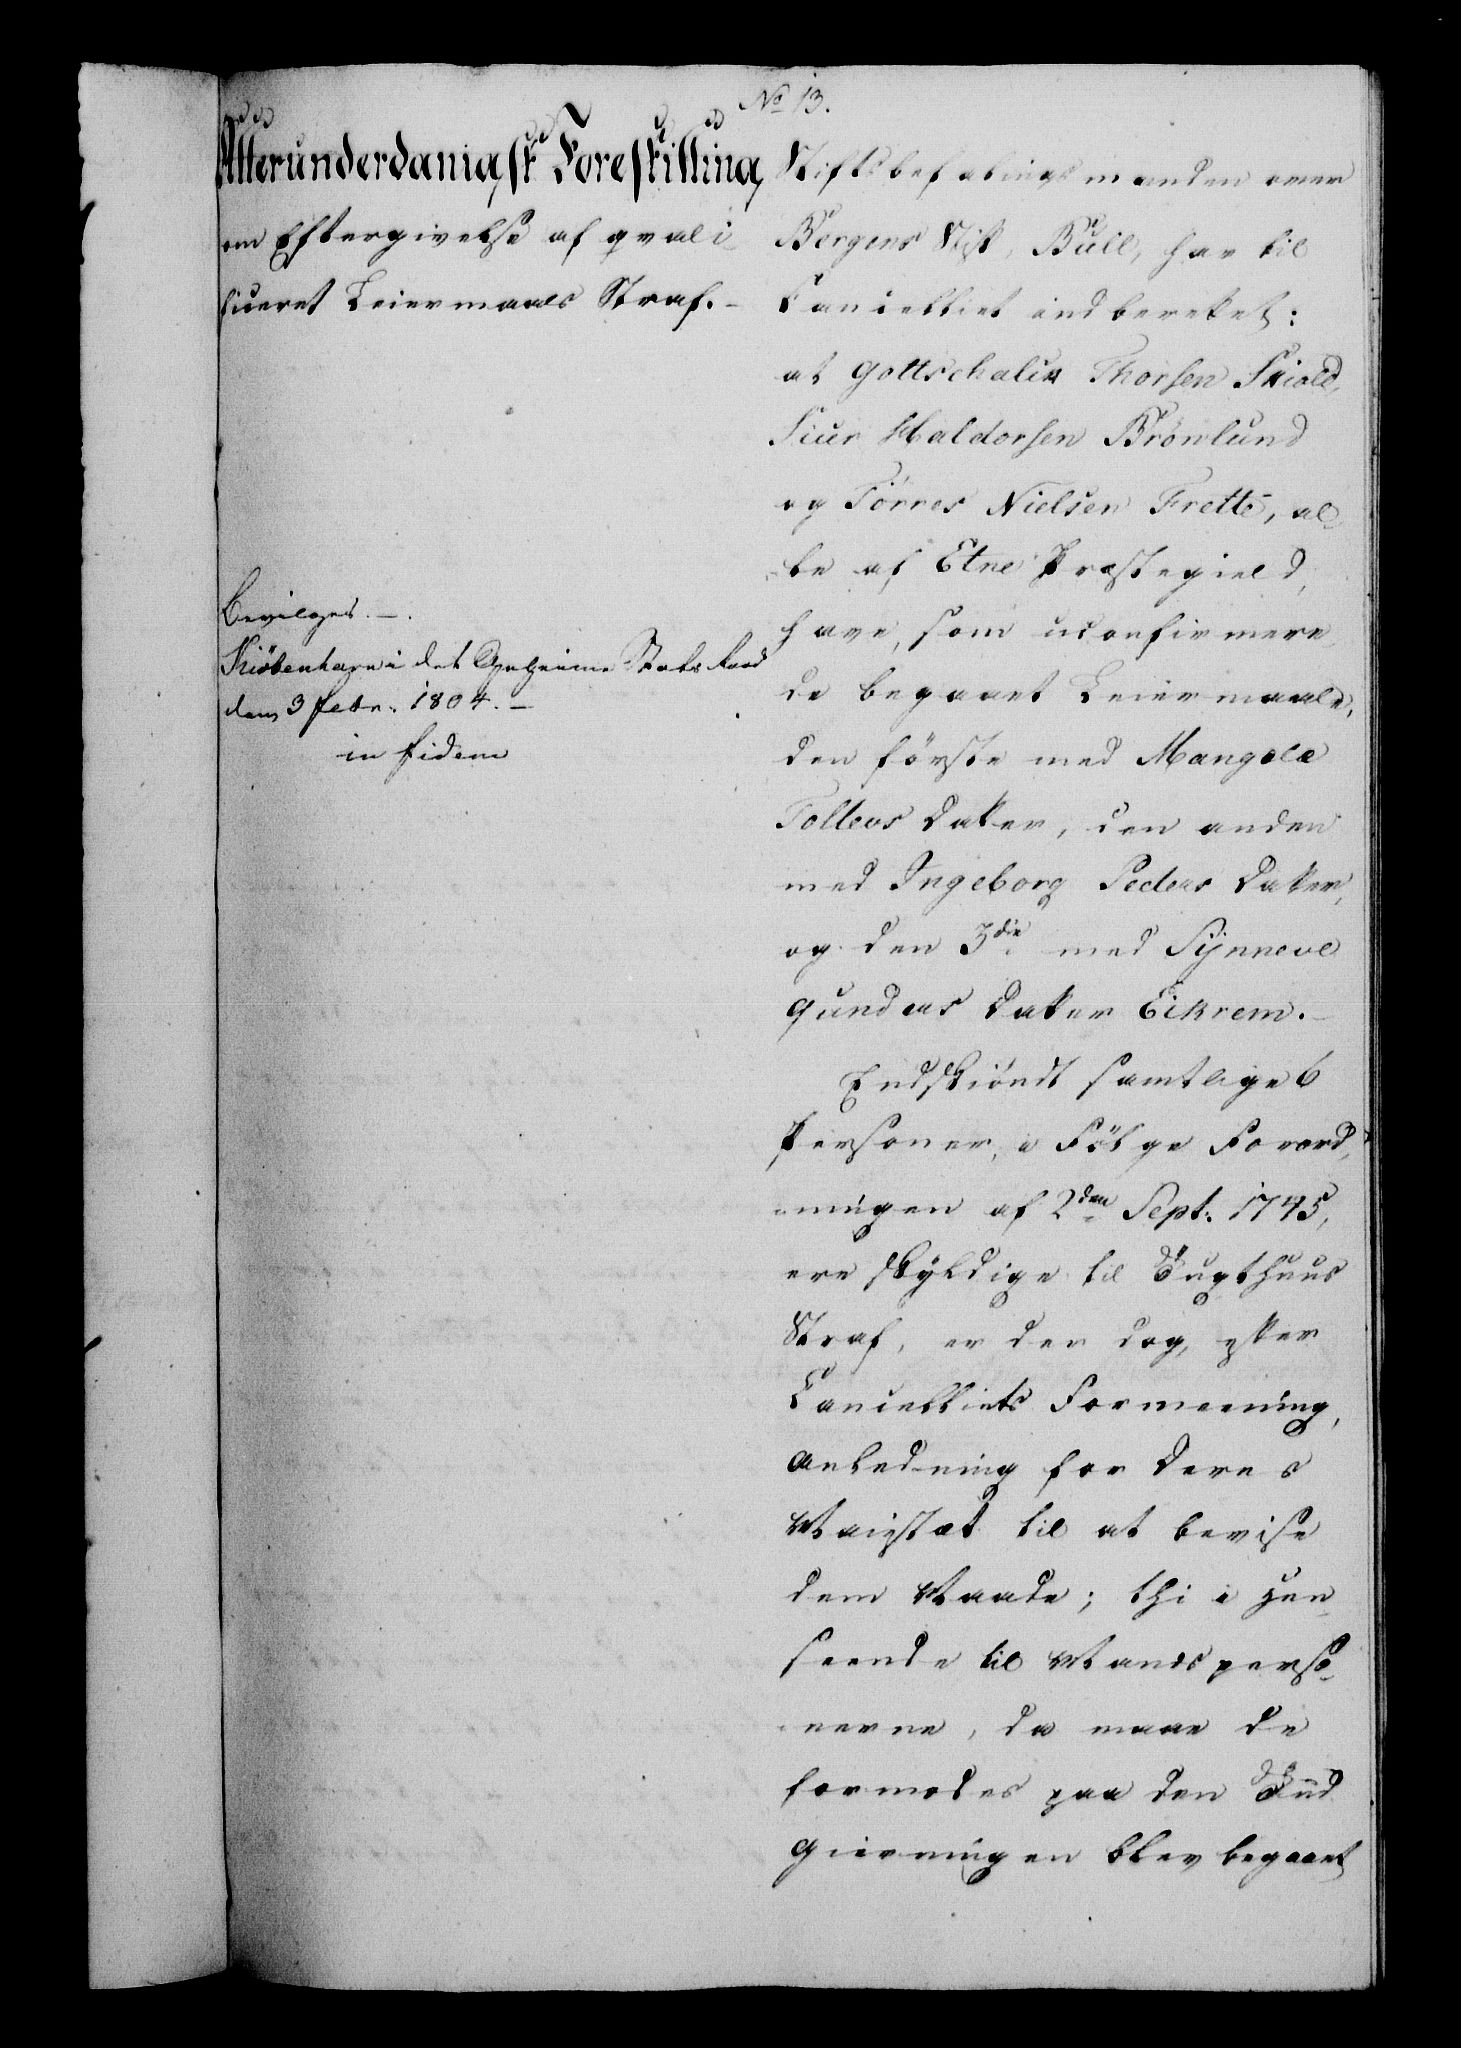 No 13.
Allerunderdanigst Forestilling
om Eftergivelse af qvali-
ficeret Leiermaals Straf. -
Bevilges. -
Kiöbenhavn i det Geheime Stats Raad
den 3 Febr. 1804. -
in fidem
Stiftsbefalingsmanden over
Bergens Stift, Bull, har til
Cancelliet indberettet:
at Gottschalck Thorsen Skiold,
Siur Haldorsen Brönlund
og Törres Nielsen Frette, al-
le af Etne Præstegield,
have, som uconfirmere-
de begaaet Leiermaale,
den förste med Mangele
Tollevs Datter, den anden
med Ingeborg Peders Datter,
og den 3die med Synneve
Gunders Datter Eikrem. -
Endskiöndt samtlige 6
Personer, i Fölge Forord-
ningen af 2den Sept. 1745,
ere skyldige til Tugthuus
Straf, er der dog, efter
Cancelliets Formeening,
Anledning for Deres
Maiestæt til at bevise
dem Naade; thi i Hen-
seende til Mandsperso-
nerne, da maae de
formodes paa den Tiid
Gierningen blev begaaet